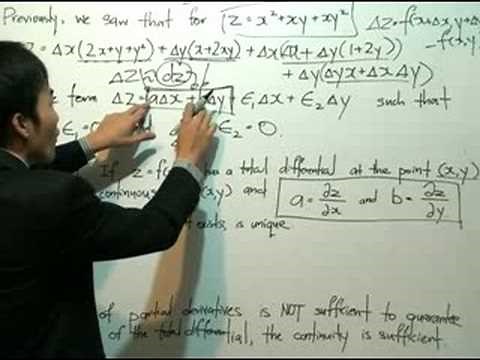 Previously, we saw that for z = x² + xy + xy² Δz = f(x+Δx, y+Δ
z = Δx(2x+y+y²) + Δy(x+2xy) + Δx(Δx + Δy(1+2y) - f(x,y
Δz dz + Δy(Δyx + ΔxΔy)
form Δz = aΔx + Δy ε₁Δx + ε₂Δy such that
ε₁ = 0 ε₂ = 0.
If z = f( has a total differential at the point (x,y)
continuous (x,y) and a = ∂z/∂x and b = ∂z/∂y
exists, is unique
of partial derivatives is NOT sufficient to guarantee
of the total differential, the continuity is sufficient.